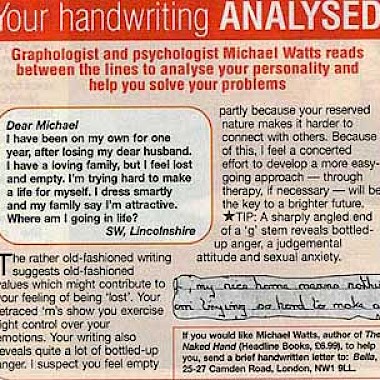 Your handwriting ANALYSED
Graphologist and psychologist Michael Watts reads
between the lines to analyse your personality and
help you solve your problems
Dear Michael
I have been on my own for one
year, after losing my dear husband.
I have a loving family, but I feel lost
and empty. I'm trying hard to make
a life for myself. I dress smartly
and my family say I'm attractive.
Where am I going in life?
SW, Lincolnshire
The rather old-fashioned writing
suggests old-fashioned
values which might contribute to
your feeling of being 'lost'. Your
retraced 'm's show you exercise
tight control over your
emotions. Your writing also
reveals quite a lot of bottled-up
anger. I suspect you feel empty
partly because your reserved
nature makes it harder to
connect with others. Because
of this, I feel a concerted
effort to develop a more easy-
going approach — through
therapy, if necessary — will be
the key to a brighter future.
★TIP: A sharply angled end
of a 'g' stem reveals bottled-
up anger, a judgemental
attitude and sexual anxiety.
my nice home means nothi
am trying so hard to make a
If you would like Michael Watts, author of The
Naked Hand (Headline Books, £6.99), to help
you, send a brief handwritten letter to: Bella,
25-27 Camden Road, London, NW1 9LL.